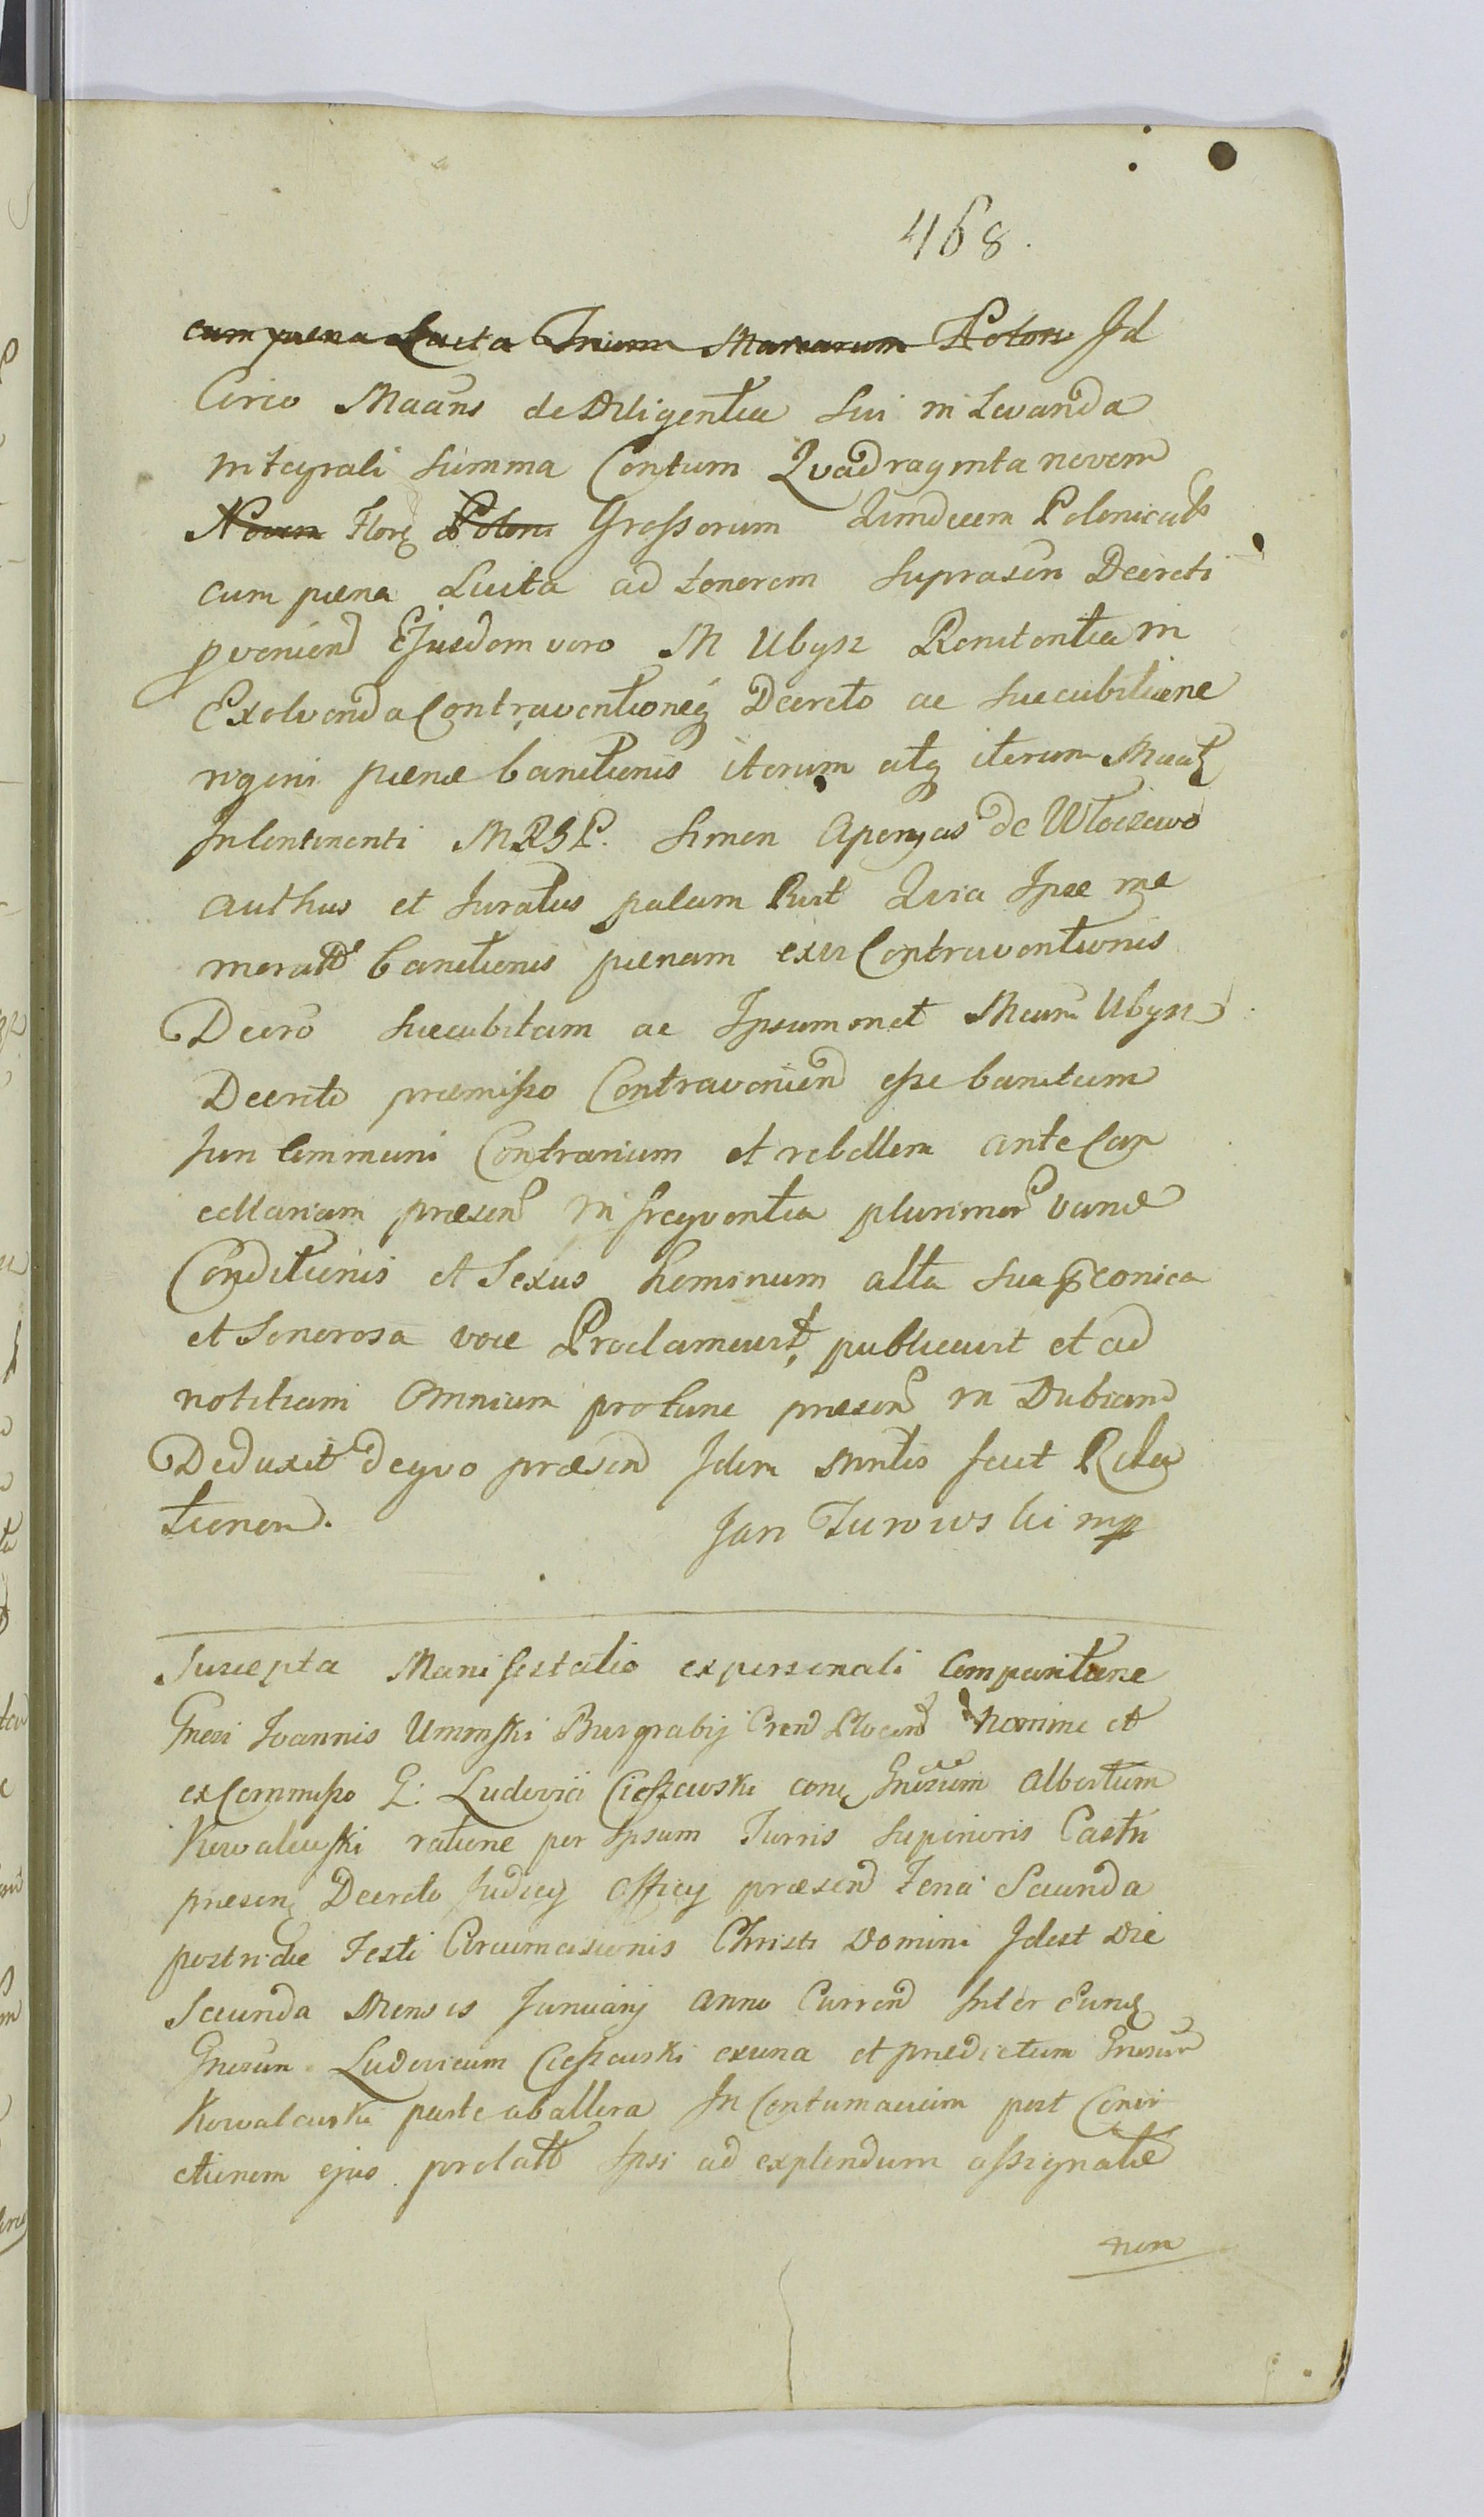 468.
cum paena Luita Trium Marcarum Polon Id
Circo Maans de Diligentia sui in Levanda
integrali summa Centum Quadraginta novem
Novem Flor Polon Grossorum Quindecem Polonical
cum paena Luita ad tenorem suprascri Decreti
proveniend Ejusdem vero M Ubysz Renitentia in
Exolvenda Contraventioneq Decreto ac succubitione
rigori paenae banitionis iterum atq iterum
Incontinenti MRSP. Simon Aponyas de Wloczewo
authus et Juratus palam Rust Quia Ipse me
moratt banitionis paenam exvi Contraventionis
Decro succubitam ac Ipsummet Mcum Ubysz
Decreto praemisso Contravenien esse banitum
Juri Communi Contrarium et rebellem ante Can
cellariam praesen in freqventia plurimor variae
Conditionis et Sexus hominum alta sua praeconica
et Sonorosa voce Proclamavit, publicavit et ad
notitiam Omnium protunc praesen in Dubiam
Deduxit deqvo praesen Idem Mntlis fecit Rela
tionem.
Jan Turowski mp
Suscepta Manifestatio expersonali Comparitione
Gnesi Joannis Uminski Burgrabij Cren Plocen Nomine et
exCommisso G: Ludovici Cieszewski con Gnesum Albertum
Kowalewski ratione per Ipsum Turris Superioris Castri
praesen Decreto Judicij Officij praesen Feria Secunda
postridie Festi Circumcisionis Christi Domini Idest die
Secunda Mensis Januarij Anno Curren Inter Eund
Gnesum Ludovicum Cieszewski exuna et praedictum Gnesum
Kowalewski parte aballera In Contumaciam post Convi
ctionem ejus prolatt Ipsi ad explendum assignatae
non